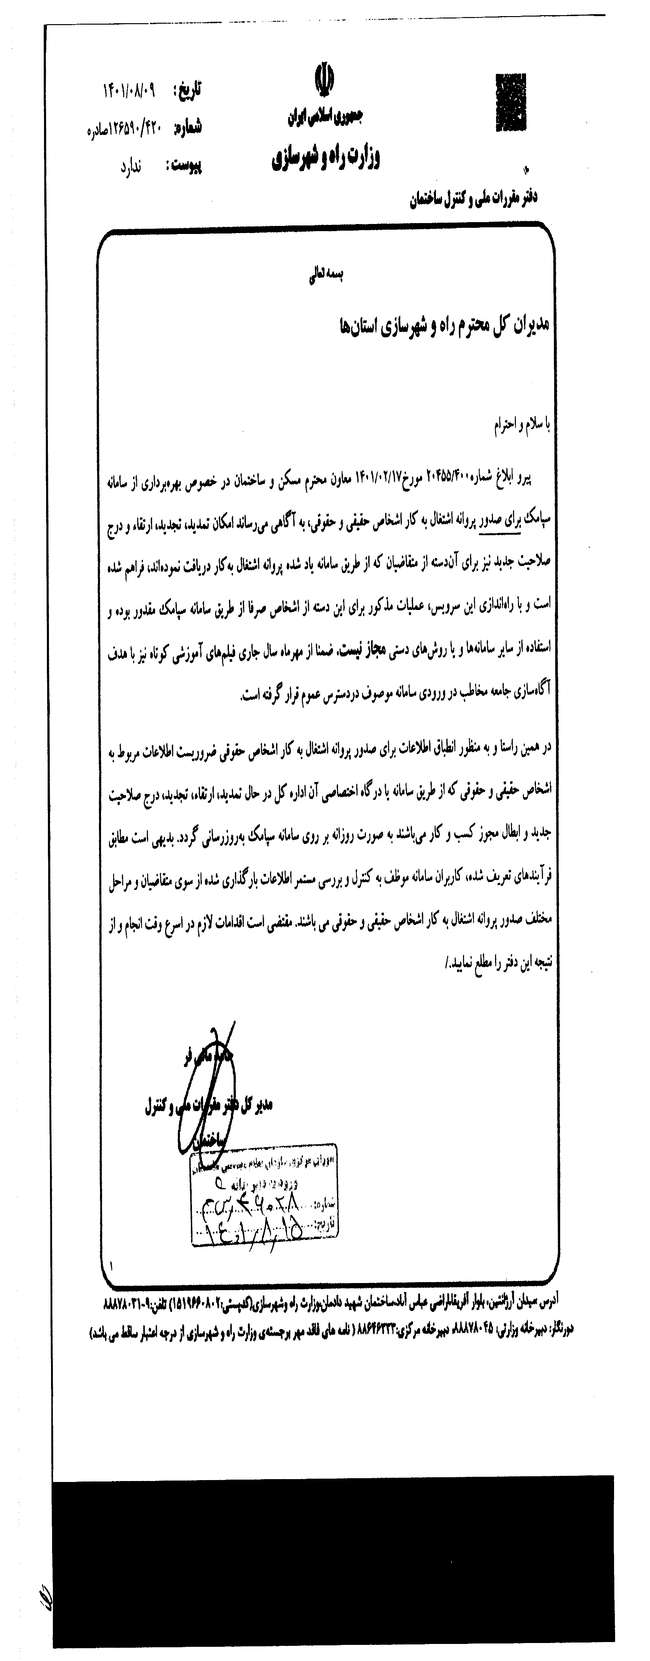 تاریخ: ۱۴۰۱/۰۸/۰۹
شماره: ۱۲۶۵۹۰/۴۲۰صادره
پیوست: ندارد
جمهوری اسلامی ایران
وزارت راه و شهرسازی
دفتر مقررات ملی و کنترل ساختمان
بسمه تعالی
مدیران کل محترم راه و شهرسازی استان‌ها
با سلام و احترام
پیرو ابلاغ شماره ۲۰۴۵۵/۴۰۰ مورخ ۱۴۰۱/۰۲/۱۷ معاون محترم مسکن و ساختمان در خصوص بهره‌برداری از سامانه
سپامک برای صدور پروانه اشتغال به کار اشخاص حقیقی و حقوقی، به آگاهی می‌رساند امکان تمدید، تجدید، ارتقاء و درج
صلاحیت جدید نیز برای آن‌دسته از متقاضیان که از طریق سامانه یاد شده پروانه اشتغال به‌کار دریافت نموده‌اند، فراهم شده
است و با راه‌اندازی این سرویس، عملیات مذکور برای این دسته از اشخاص صرفا از طریق سامانه سپامک مقدور بوده و
استفاده از سایر سامانه‌ها و یا روش‌های دستی مجاز نیست. ضمنا از مهرماه سال جاری فیلم‌های آموزشی کوتاه نیز با هدف
آگاه‌سازی جامعه مخاطب در ورودی سامانه موصوف دردسترس عموم قرار گرفته است.
در همین راستا و به منظور انطباق اطلاعات برای صدور پروانه اشتغال به کار اشخاص حقوقی ضروریست اطلاعات مربوط به
اشخاص حقیقی و حقوقی که از طریق سامانه یا درگاه اختصاصی آن اداره کل در حال تمدید، ارتقاء، تجدید، درج صلاحیت
جدید و ابطال مجوز کسب و کار می‌باشند به صورت روزانه بر روی سامانه سپامک به‌روزرسانی گردد. بدیهی است مطابق
فرآیندهای تعریف شده، کاربران سامانه موظف به کنترل و بررسی مستمر اطلاعات بارگذاری شده از سوی متقاضیان و مراحل
مختلف صدور پروانه اشتغال به کار اشخاص حقیقی و حقوقی می باشند. مقتضی است اقدامات لازم در اسرع وقت انجام و از
نتیجه این دفتر را مطلع نمایید./
حامد مانی فر
مدیر کل دفتر مقررات ملی و کنترل
ساختمان
شماره:
تاریخ: ۱۴۰۱/۸/۱۵
۱
آدرس: میدان آرژانتین، بلوار آفریقا، اراضی عباس آباد، ساختمان شهید دادمان، وزارت راه وشهرسازی(کدپستی:۱۵۱۹۶۶۰۸۰۲) تلفن:۹-۸۸۸۷۸۰۳۱
دورنگار: دبیرخانه وزارتی: ۸۸۸۷۸۰۴۵، دبیرخانه مرکزی:۸۸۶۴۶۳۳۳ ( نامه های فاقد مهر برجسته‌ی وزارت راه و شهرسازی از درجه اعتبار ساقط می باشد)